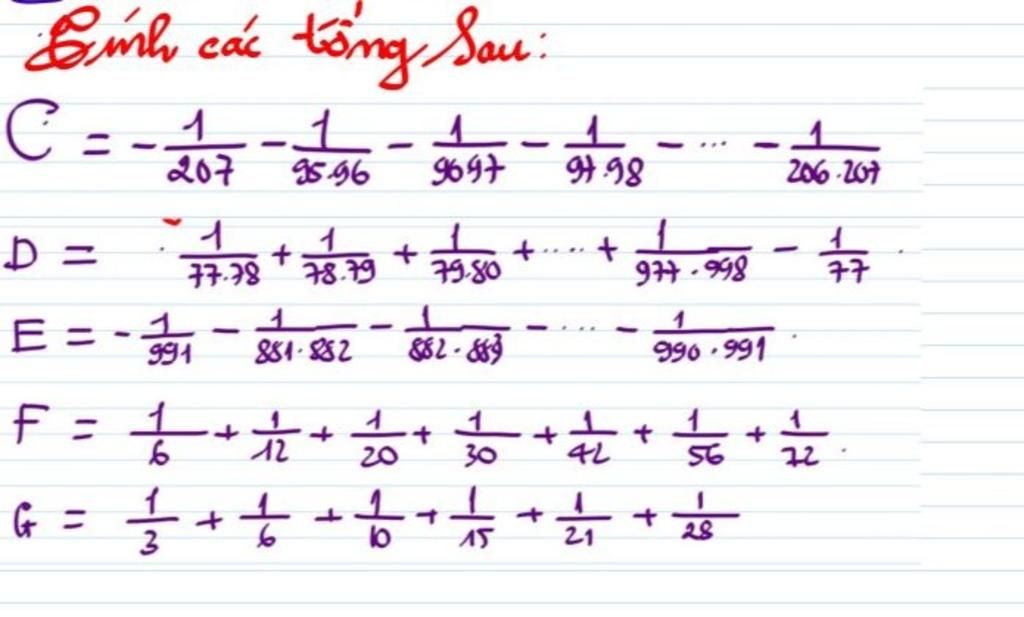 Tính các tổng sau:
C = - 1/207 - 1/95.96 - 1/9697 - 1/97.98 - ... - 1/206.207
D = 1/77.78 + 1/78.79 + 1/79.80 + .... + 1/977.998 - 1/77
E = - 1/991 - 1/881.882 - 1/882.883 - ... - 1/990.991
F = 1/6 + 1/12 + 1/20 + 1/30 + 1/42 + 1/56 + 1/72
G = 1/3 + 1/6 + 1/10 + 1/15 + 1/21 + 1/28